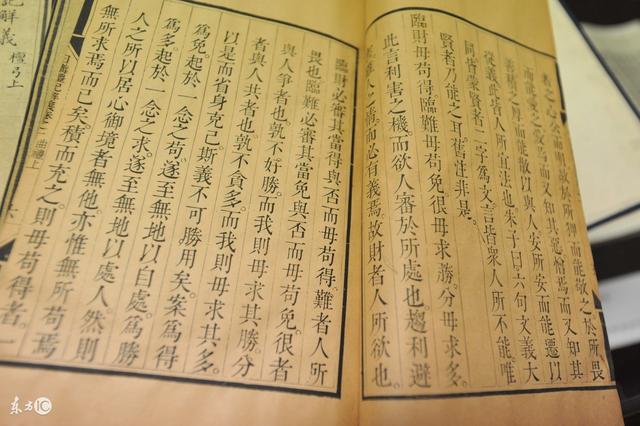 者之心公而明故於所狎而能敬之於所畏
而能愛之於愛焉而又知其惡憎焉而又知其
善積而能散以與人安所安而能遷以
從義此皆人所宜法也朱子曰六句文義大
同皆蒙賢者二字爲文言皆衆人所不能唯
賢者乃能之耳舊注非是。
臨財毋苟得。臨難毋苟免。很毋求勝。分毋求多。
此言利害之機。而欲人審於所處也。趨利避
雖人情。而必有義焉。故財者人所欲也。
臨財必審其當得與否而毋苟得。難者人所
畏也。臨難必審其當免與否而毋苟免。很者
與人爭者也。孰不好勝。而我則毋求其勝。分
者與人共者也。孰不貪多。而我則毋求其多。
以是而省身克己。斯義不可勝用矣。案爲得
爲免。起於一念之苟。遂至無地以自處。爲勝
爲多。起於一念之求。遂至無地以處人。然則
人之所以居心御境者無他。亦惟無所苟焉
無所求焉而已矣。積而充之。則毋苟得者。一
日講禮記解義 卷二 曲禮上
記解義 檀弓上
东方IC